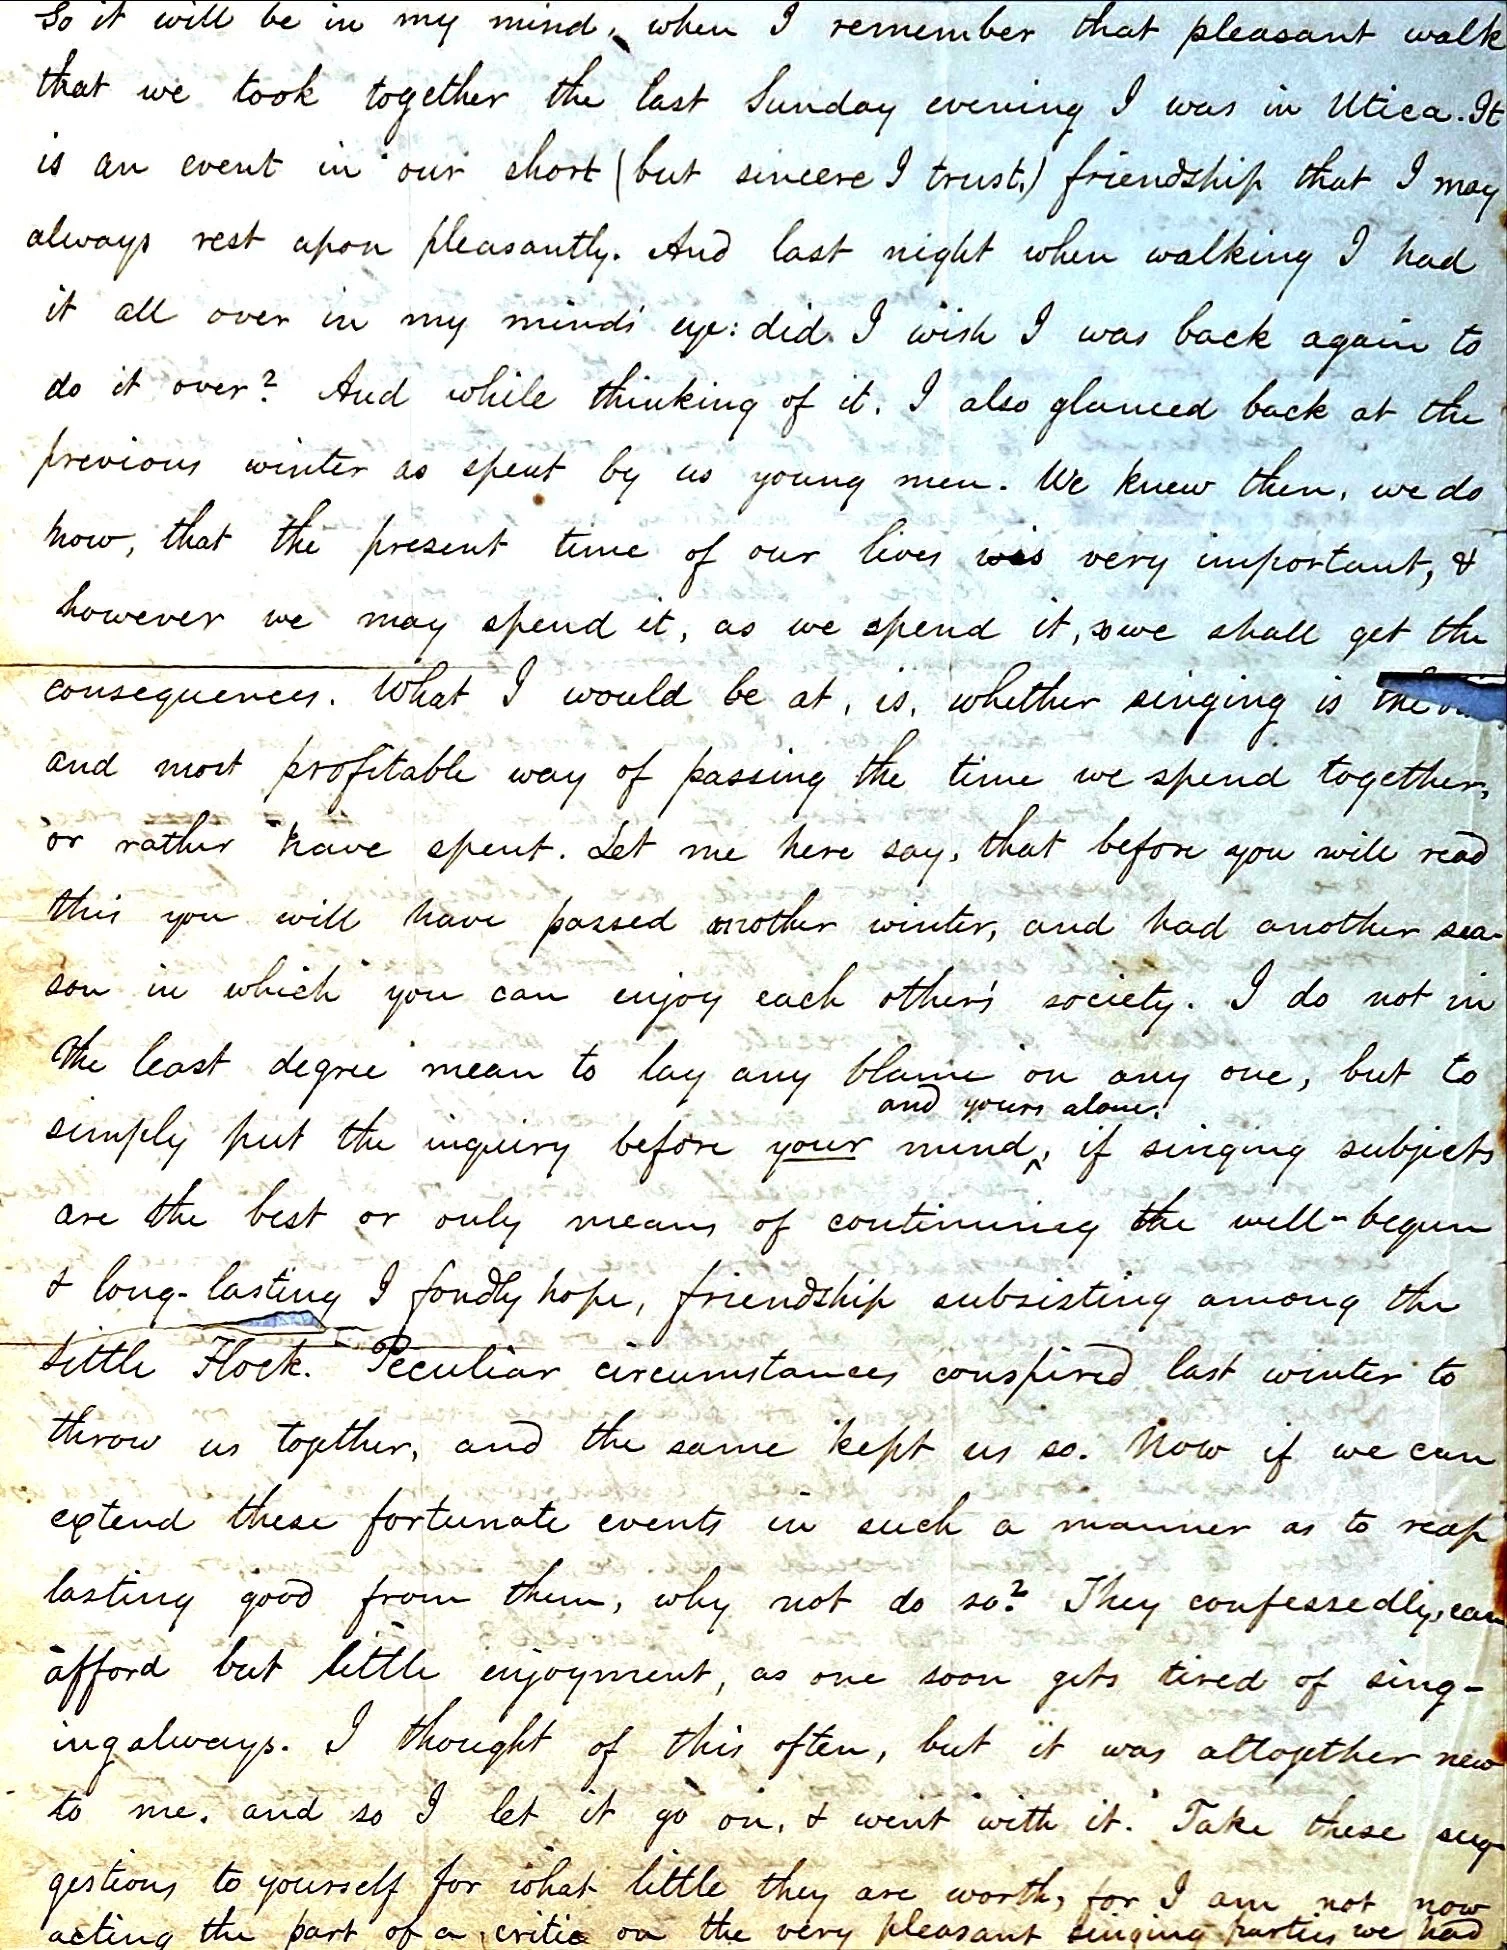 So it will be in my mind, when I remember that pleasant walk
that we took together the last Sunday evening I was in Utica. It
is an event in our short (but sincere I trust,) friendship that I may
always rest upon pleasantly. And last night when walking I had
it all over in my minds' eye: did I wish I was back again to
do it over? And while thinking of it, I also glanced back at the
previous winter as spent by us young men. We knew then, we do
now, that the present time of our lives was very important, &
however we may spend it, as we spend it, so we shall get the
consequences. What I would be at, is, whether singing is the
and most profitable way of passing the time we spend together,
or rather have spent. Let me here say, that before you will read
this you will have passed another winter, and had another sea-
son in which you can enjoy each other's society. I do not in
the least degree mean to lay any blame on any one, but to
and yours alone,
simply put the inquiry before your mind^, if singing subjects
are the best or only means of continuing the well-begun
& long-lasting I fondly hope, friendship subsisting among the
Little Flock. Peculiar circumstances conspired last winter to
throw us together, and the same kept us so. Now if we can
extend these fortunate events in such a manner as to reap
lasting good from them, why not do so? They confessedly, can
afford but little enjoyment, as one soon gets tired of sing-
ing always. I thought of this often, but it was altogether new
to me, and so I let it go on, & went with it. Take these sug-
gestions to yourself for what little they are worth, for I am not now
acting the part of a critic on the very pleasant singing parties we had